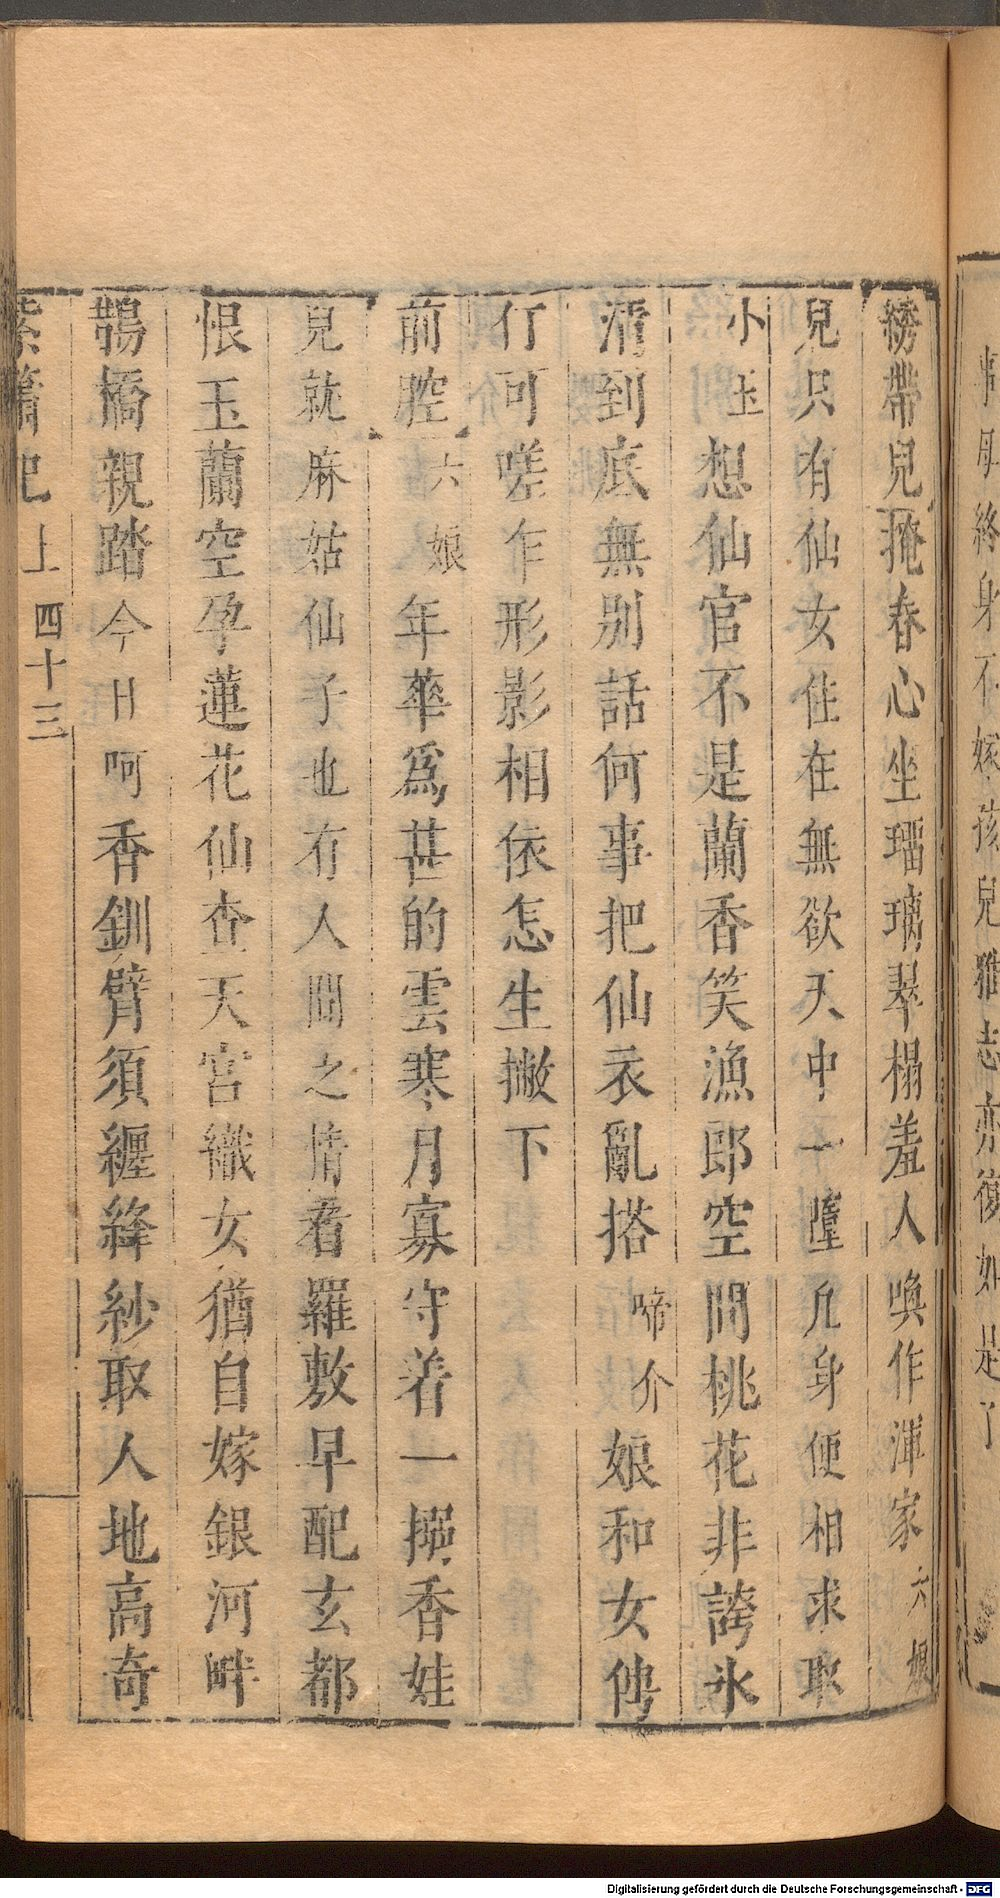 事母終身不嫁孩兒雅志亦復如是了
綉帶兒掩春心坐瑠璃翠榻羞人喚作渾家六娘
兒只有仙女住在無欲天中一墮凡身便相求取
小玉想仙官不是蘭香笑漁郎空問桃花非誇氷
清到底無別話何事把仙衣亂搭啼介娘和女俜
仃可嗟乍形影相依怎生撇下
前腔六娘年華爲甚的雲寒月寡守着一搦香娃
兒就麻姑仙子也有人間之情看羅敷早配玄都
恨玉蘭空孕蓮花仙查天宮織女猶自嫁銀河畔
鵲橋親踏今日呵香釧臂須纏絳紗取人地高奇
紫簫記 上 四十三
Digitalisierung gefördert durch die Deutsche Forschungsgemeinschaft - DFG